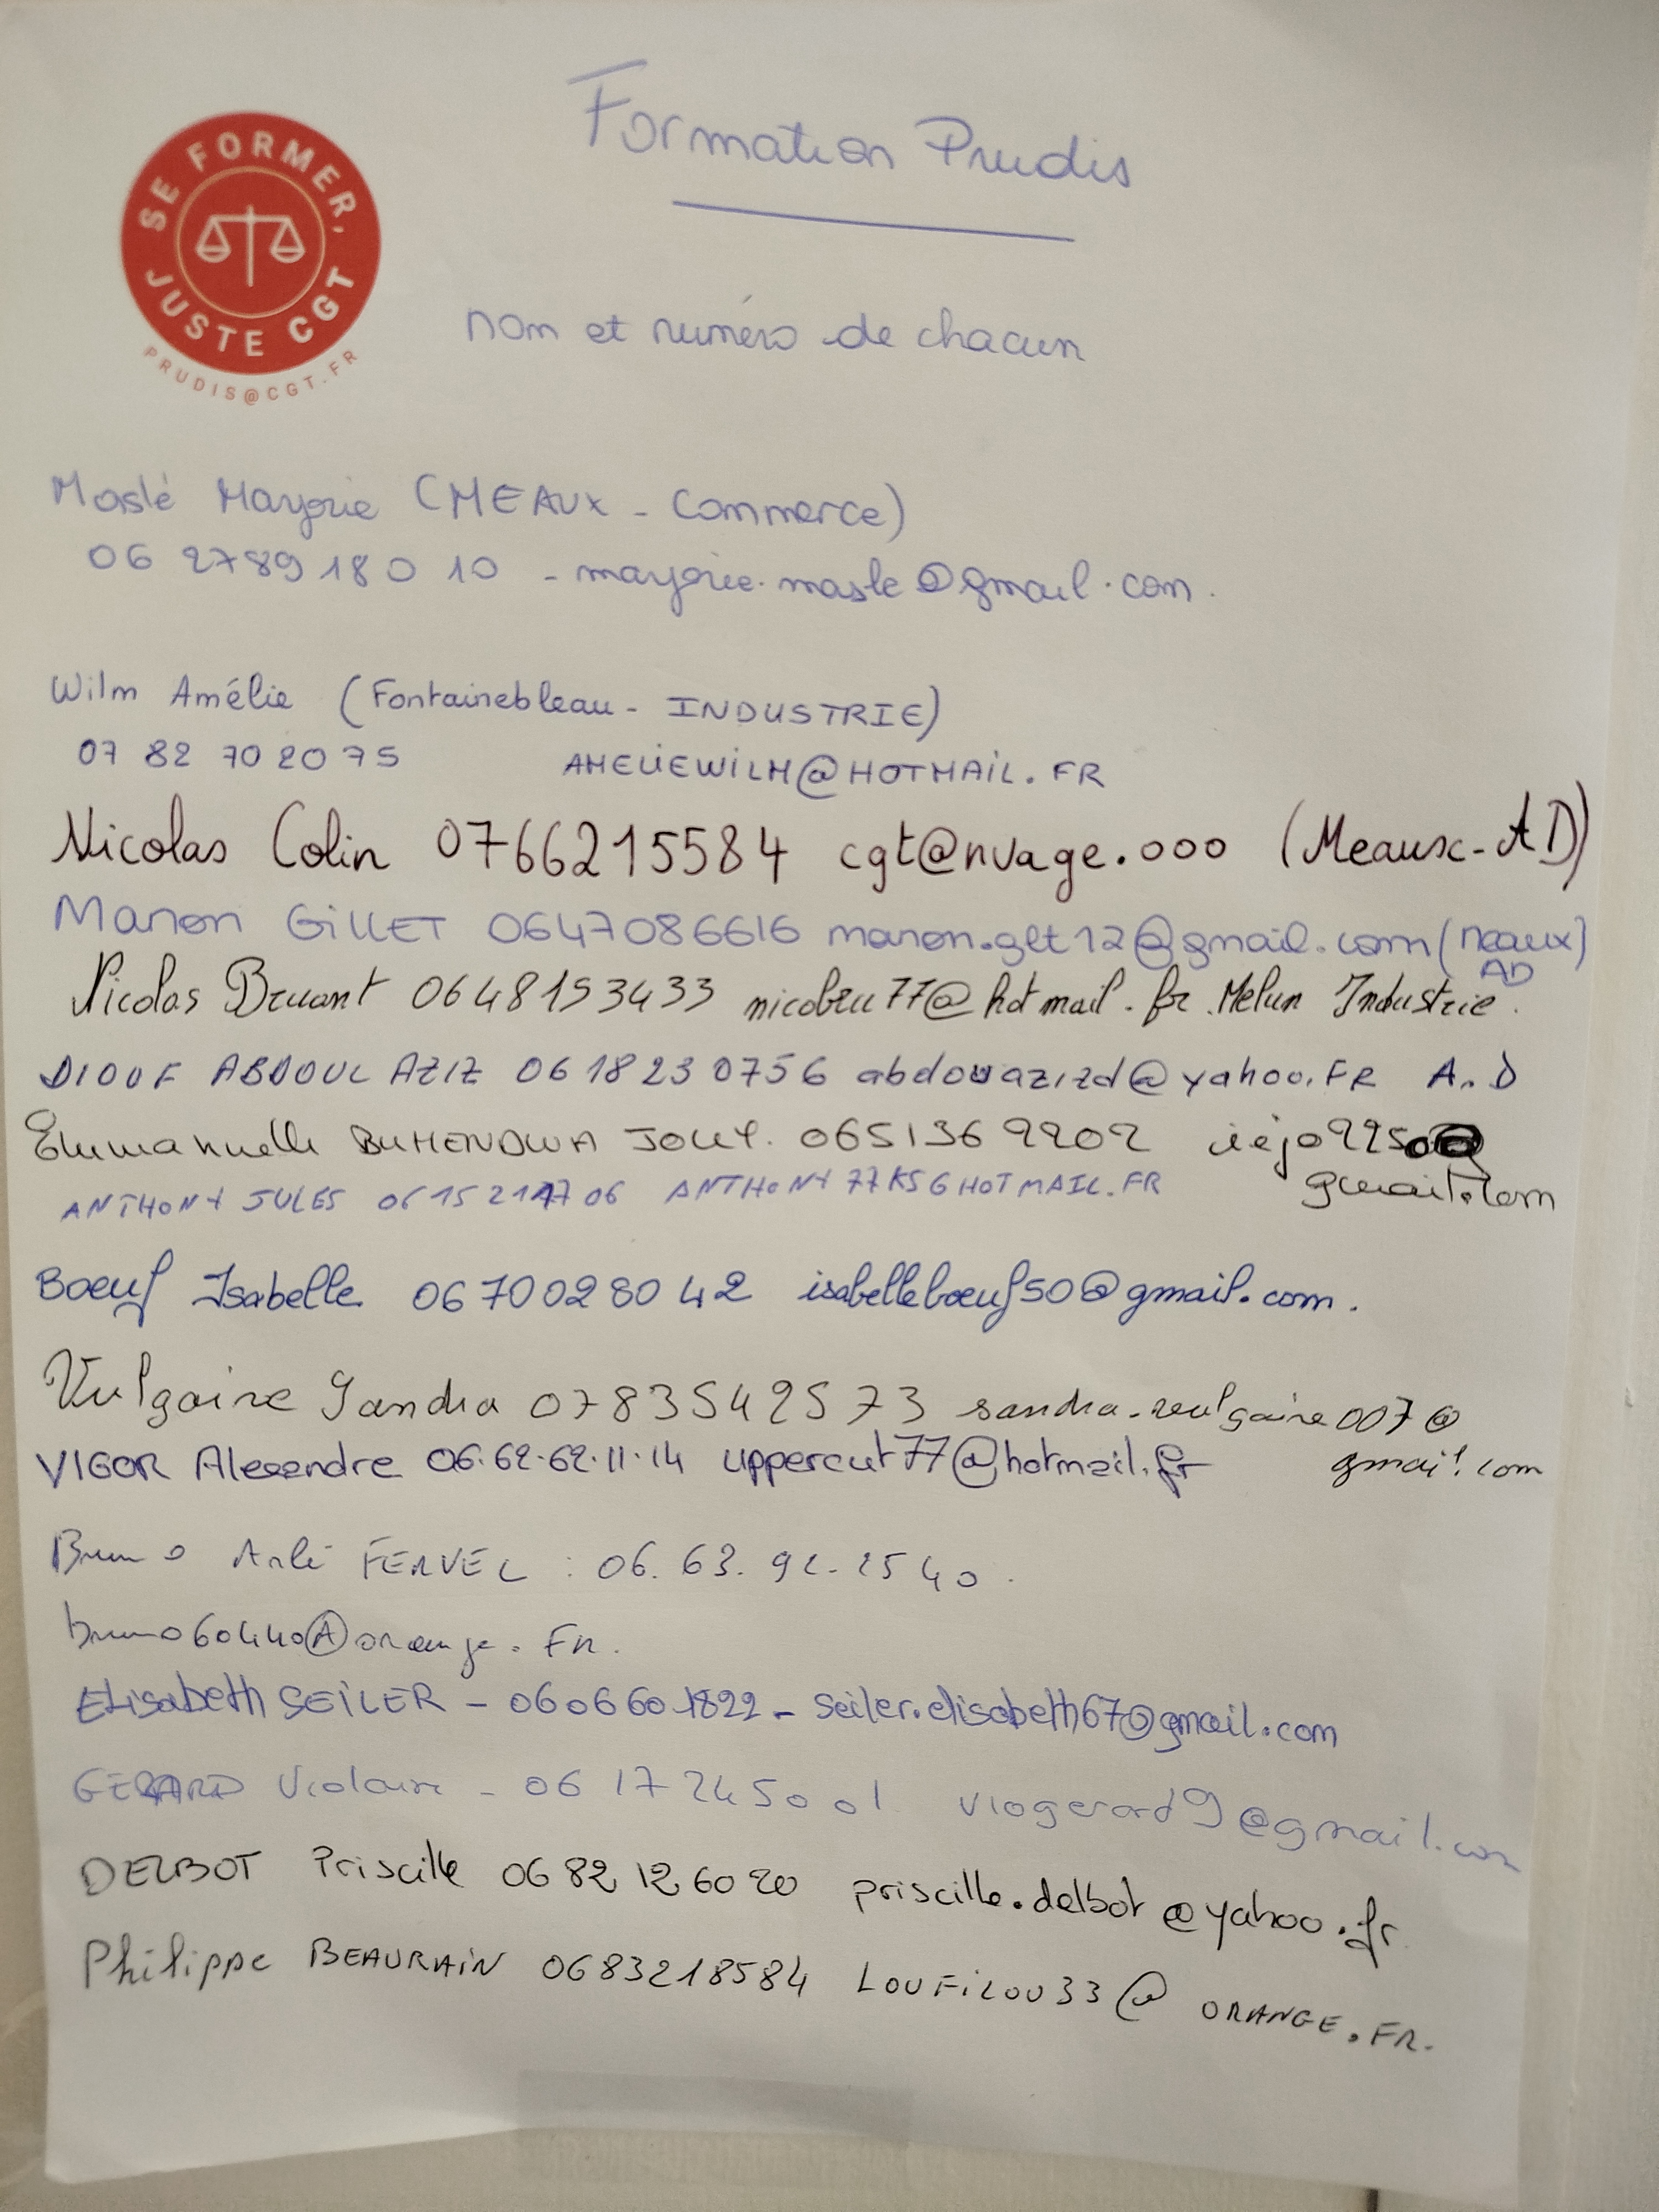 SE FORMER,
JUSTE CGT
PRUDIS@CGT.FR
Formation Prudis
nom et numéro de chacun
Maslé Marjorie (MEAUX - Commerce)
06 2789 18 0 10 - marjorie.masle@gmail.com.
Wilm Amélie (Fontainebleau - INDUSTRIE)
07 82 70 20 75 AMELIEWILM@HOTMAIL.FR
Nicolas Colin 0766215584 cgt@nuage.ooo (Meaux-AD)
Manon GILLET 0647086616 manon.glt12@gmail.com (Meaux)
AD
Nicolas Bruant 0648153433 nicobru77@hotmail.fr Melun Industrie.
DIOUF ABDOUL AZIZ 06 18 23 0756 abdouazizd@yahoo.FR A.D
Emmanuelle BUHENDWA JOLLY. 0651369202
gmail.com
ANTHONY JULES 06 15 21 47 06 ANTHONY77KS@HOTMAIL.FR
Boeuf Isabelle 06 70 02 80 42 isabelleboeuf50@gmail.com.
Vulgaire Sandra 0783542573 sandra.vulgaire007@
gmail.com
VIGOR Alexandre 06.62.62.11.14 uppercut77@hotmail.fr
Bruno FERVEL : 06. 63. 92. 25 40.
bruno60440@orange.FR.
Elisabeth SEILER - 0606601822 - seiler.elisabeth67@gmail.com
GERARD Violaine - 06 17 24 50 01 viogerard9@gmail.com
DELBOT Priscille 06 82 12 60 20 priscille.delbot@yahoo.fr
Philippe BEAURAIN 0683218584 LOUFILOU33@ORANGE.FR.